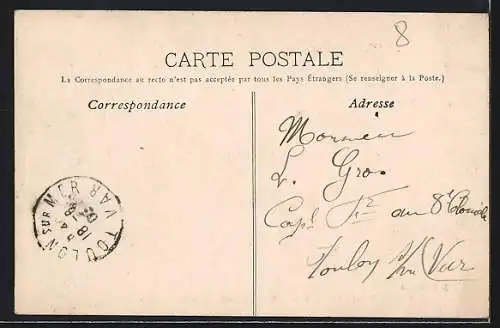 8
CARTE POSTALE
La Correspondance au recto n'est pas acceptée par tous les Pays Étrangers (Se renseigner à la Poste.)
Correspondance
Adresse
Monsieur
L. Gros
Capl du 8e Coloniale
Toulon Var
TOULON SUR MER VAR